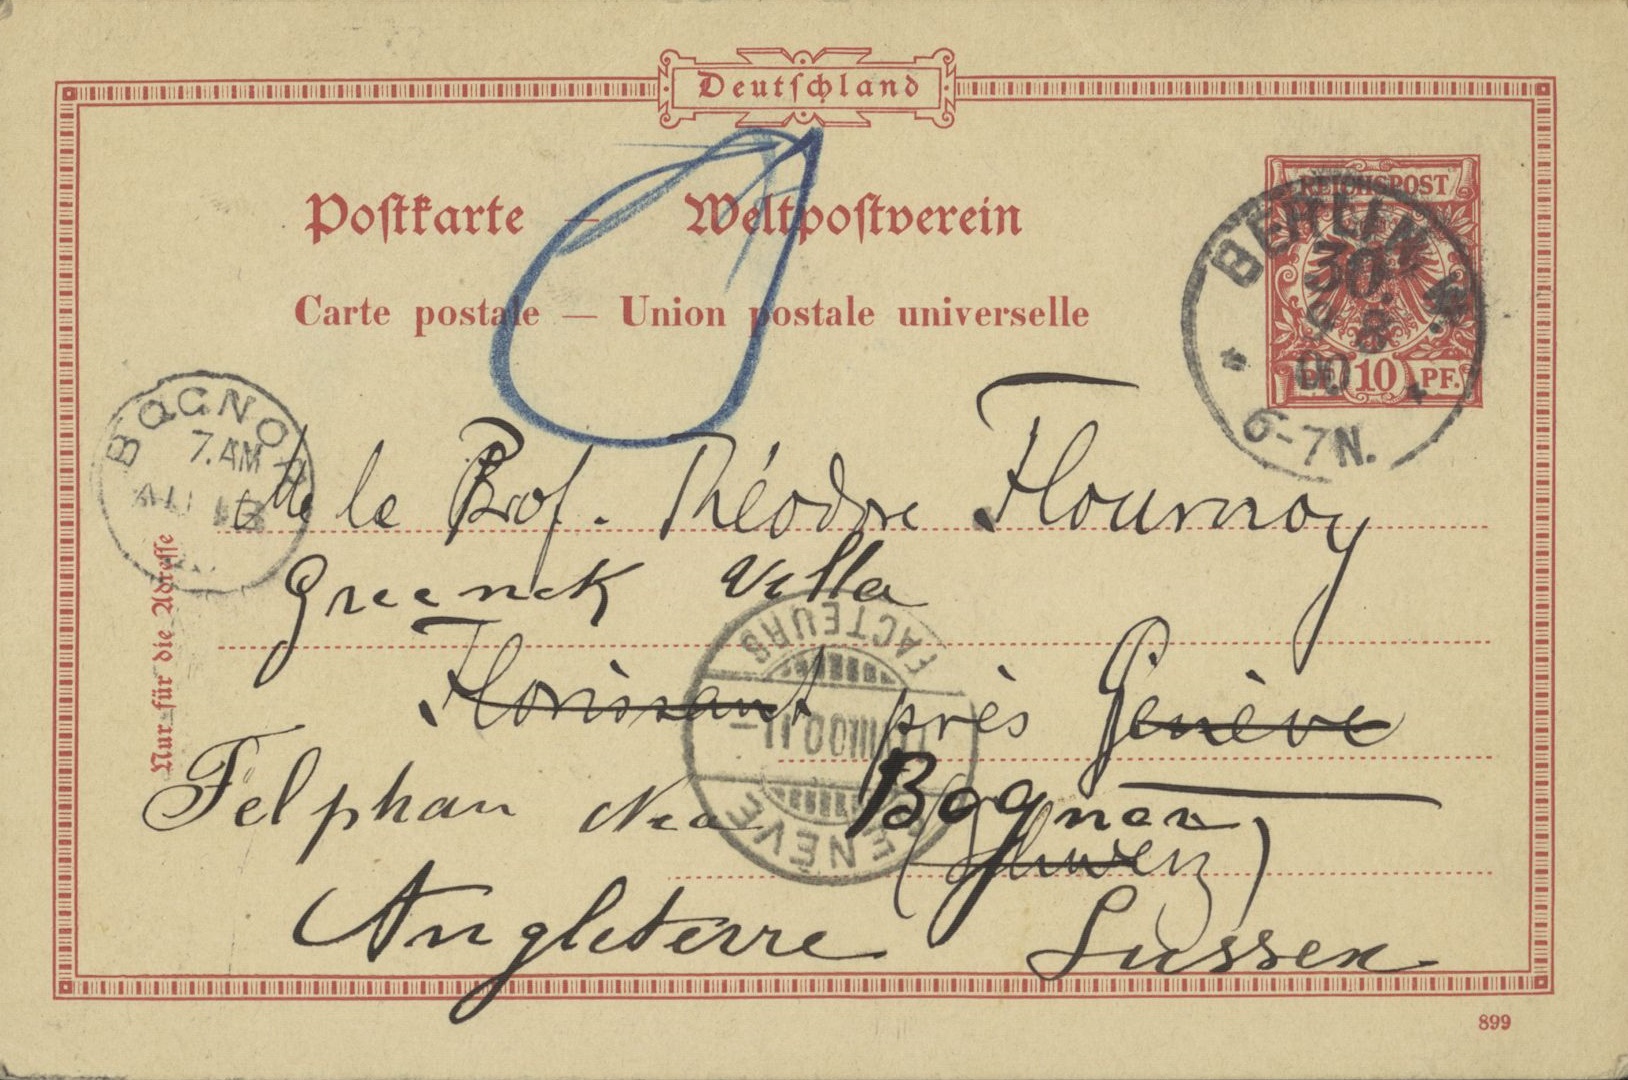 Deutschland
Postkarte — Weltpostverein
Carte postale — Union postale universelle
REICHSPOST
PF. 10 PF.
BERLIN W.
30.
8
00
6-7N.
BOGNOR
7.AM
AU
Nur für die Adresse
Mr le Prof. Théodore Flournoy
Greenek Villa
Florissant près Genève
Felphan Nea Bognor
(Schweiz)
Angleterre Sussex
FACTEURS
VIII00.11–
GENÈVE
899